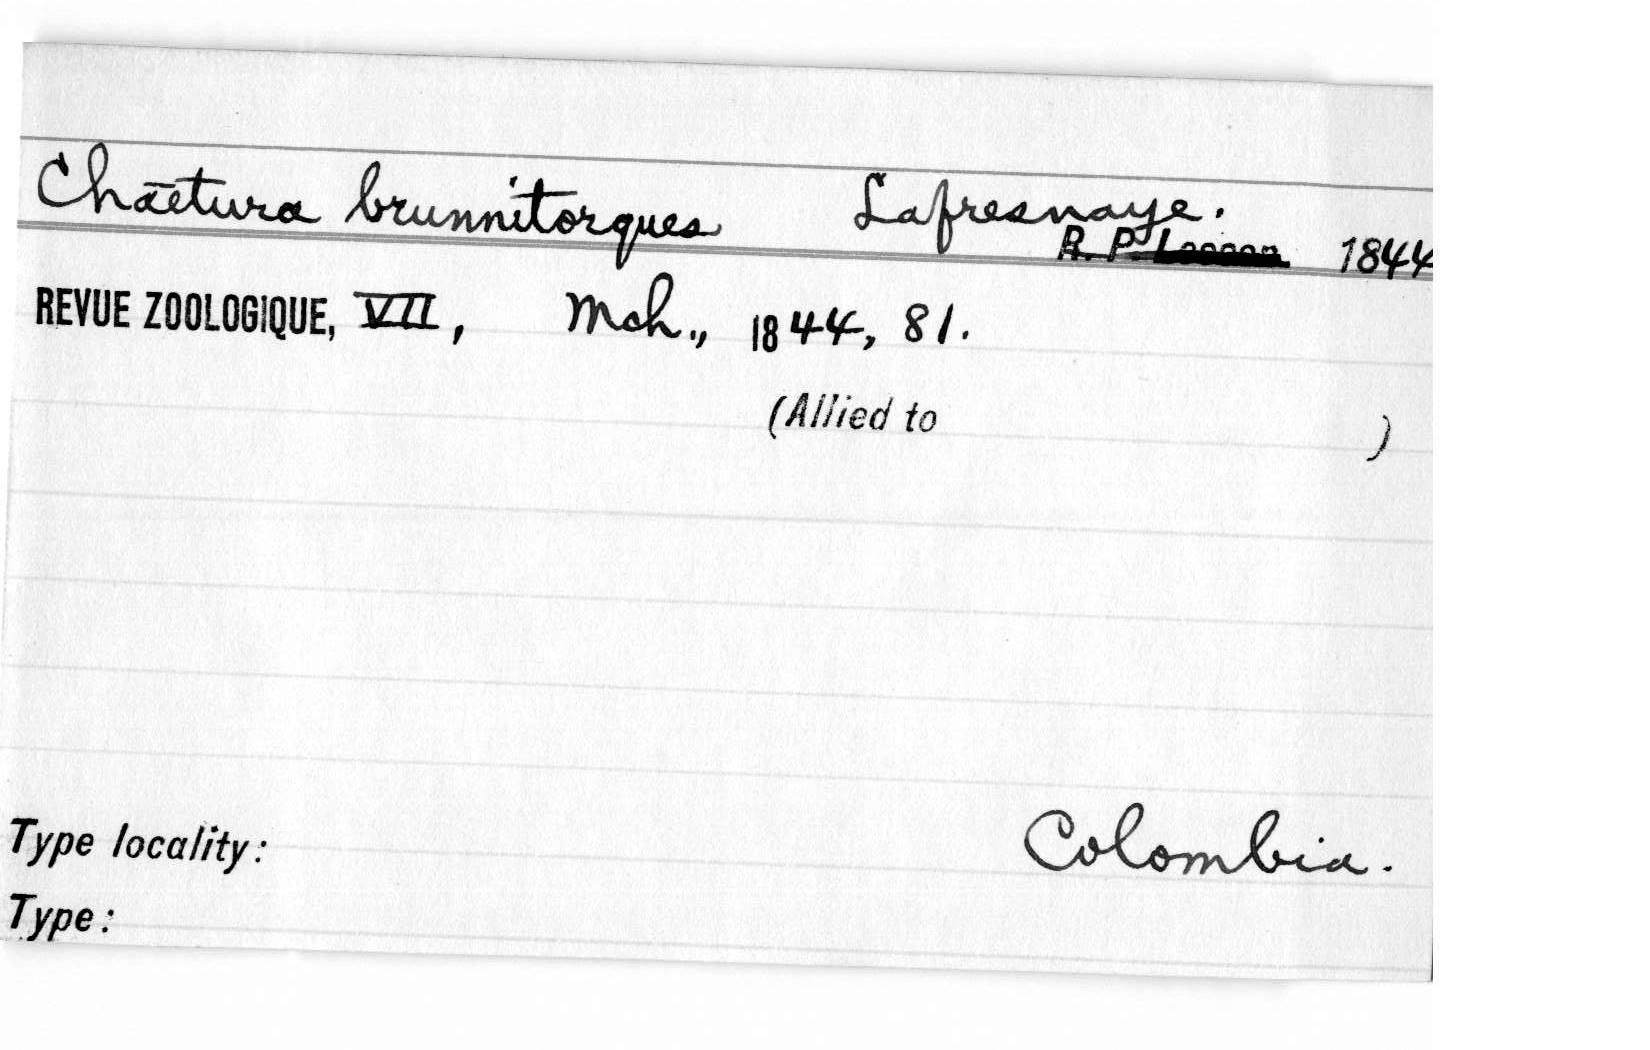 Chaetura brunnitorques Lafresnaye.
R. P. Lesson 1844
REVUE ZOOLOGIQUE, VII, Mch., 1844, 81.
(Allied to )
Type locality: Colombia.
Type: